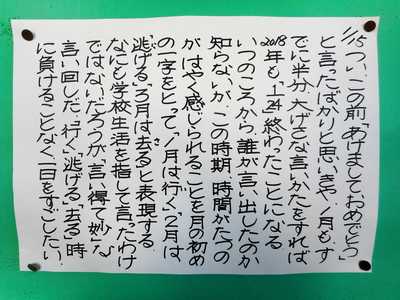 1/15 つい、この前「あけましておめでとう」
と言ったばかりと思いきや1月もす
でに半分、大げさな言いかたをすれば
2018年も、1/24終わったことになる
いつのころから、誰が言い出したのか
知らないが、この時期、時間がたつの
がはやく感じられることを月の初め
の一字をとって、「1月は行く、2月は
逃げる」3月は去ると表現する
なにも学校生活を指して言ったわけ
ではないだろうが、「言い得て妙」な
言い回しだ、「行く」「逃げる」「去る」時
に負けることなく一日をすごしたい。